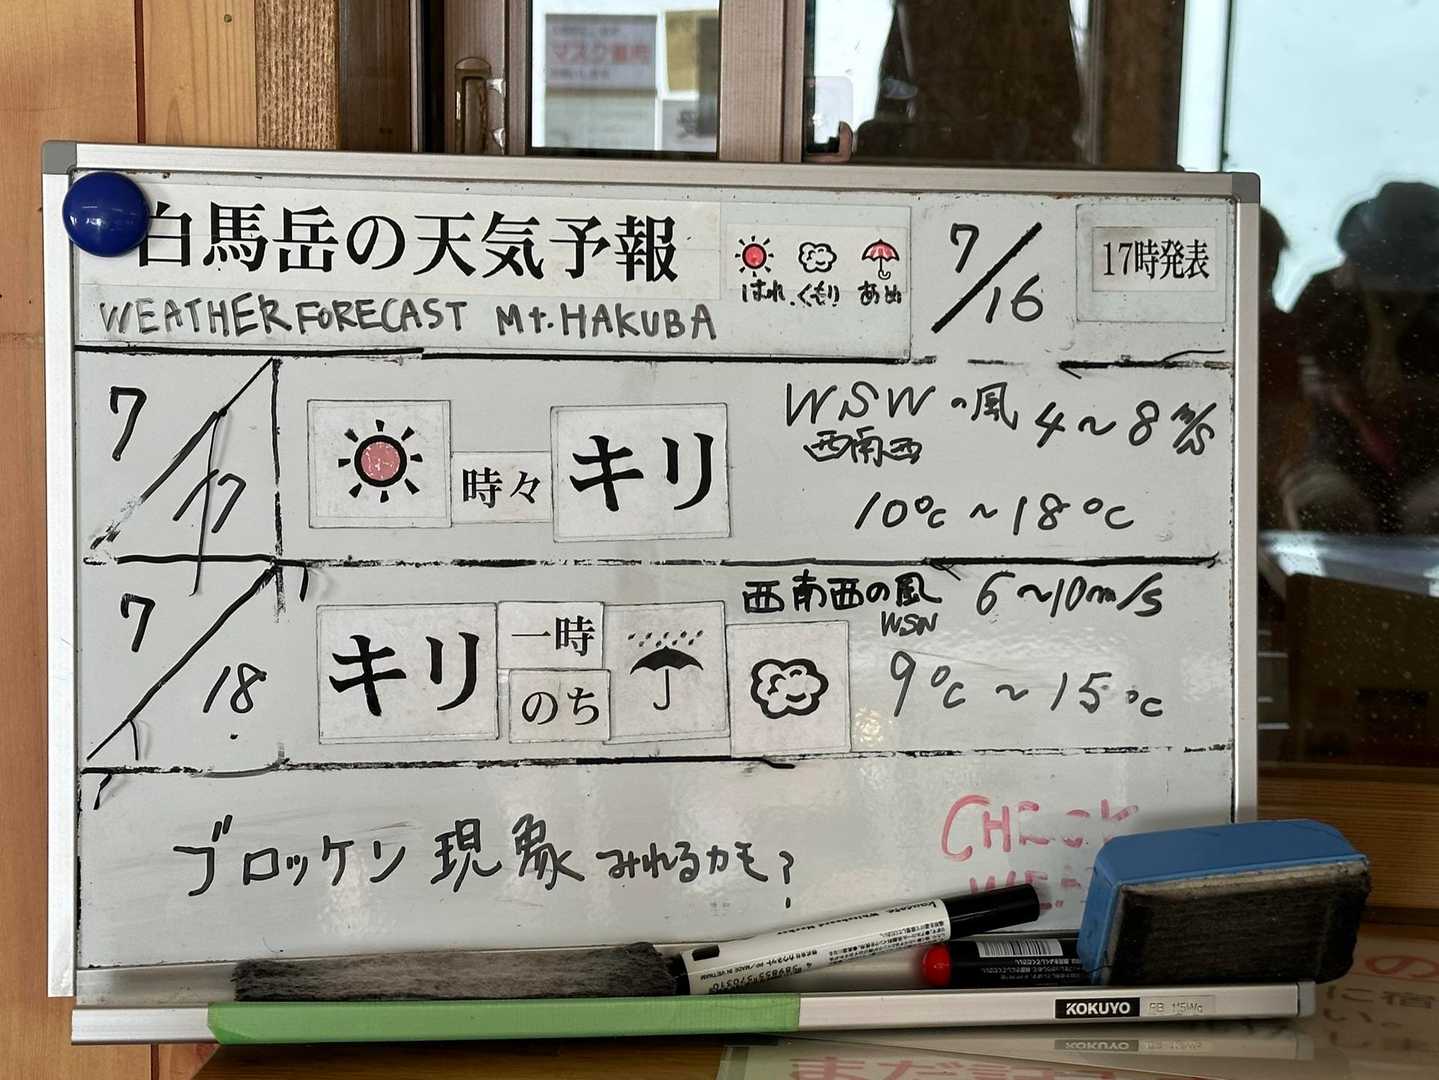 マスク着用
白馬岳の天気予報
WEATHER FORECAST Mt.HAKUBA
はれ くもり あめ
7/16
17時発表
7/17
時々 キリ
WSWの風 4~8 m/s
西南西
10℃~18℃
7/18
キリ 一時 のち
西南西の風 6~10m/s
WSW
9℃~15℃
ブロッケン現象みれるカモ?
CHECK
Whiteboard Marker
MADE IN VIETNAM
KOKUYO